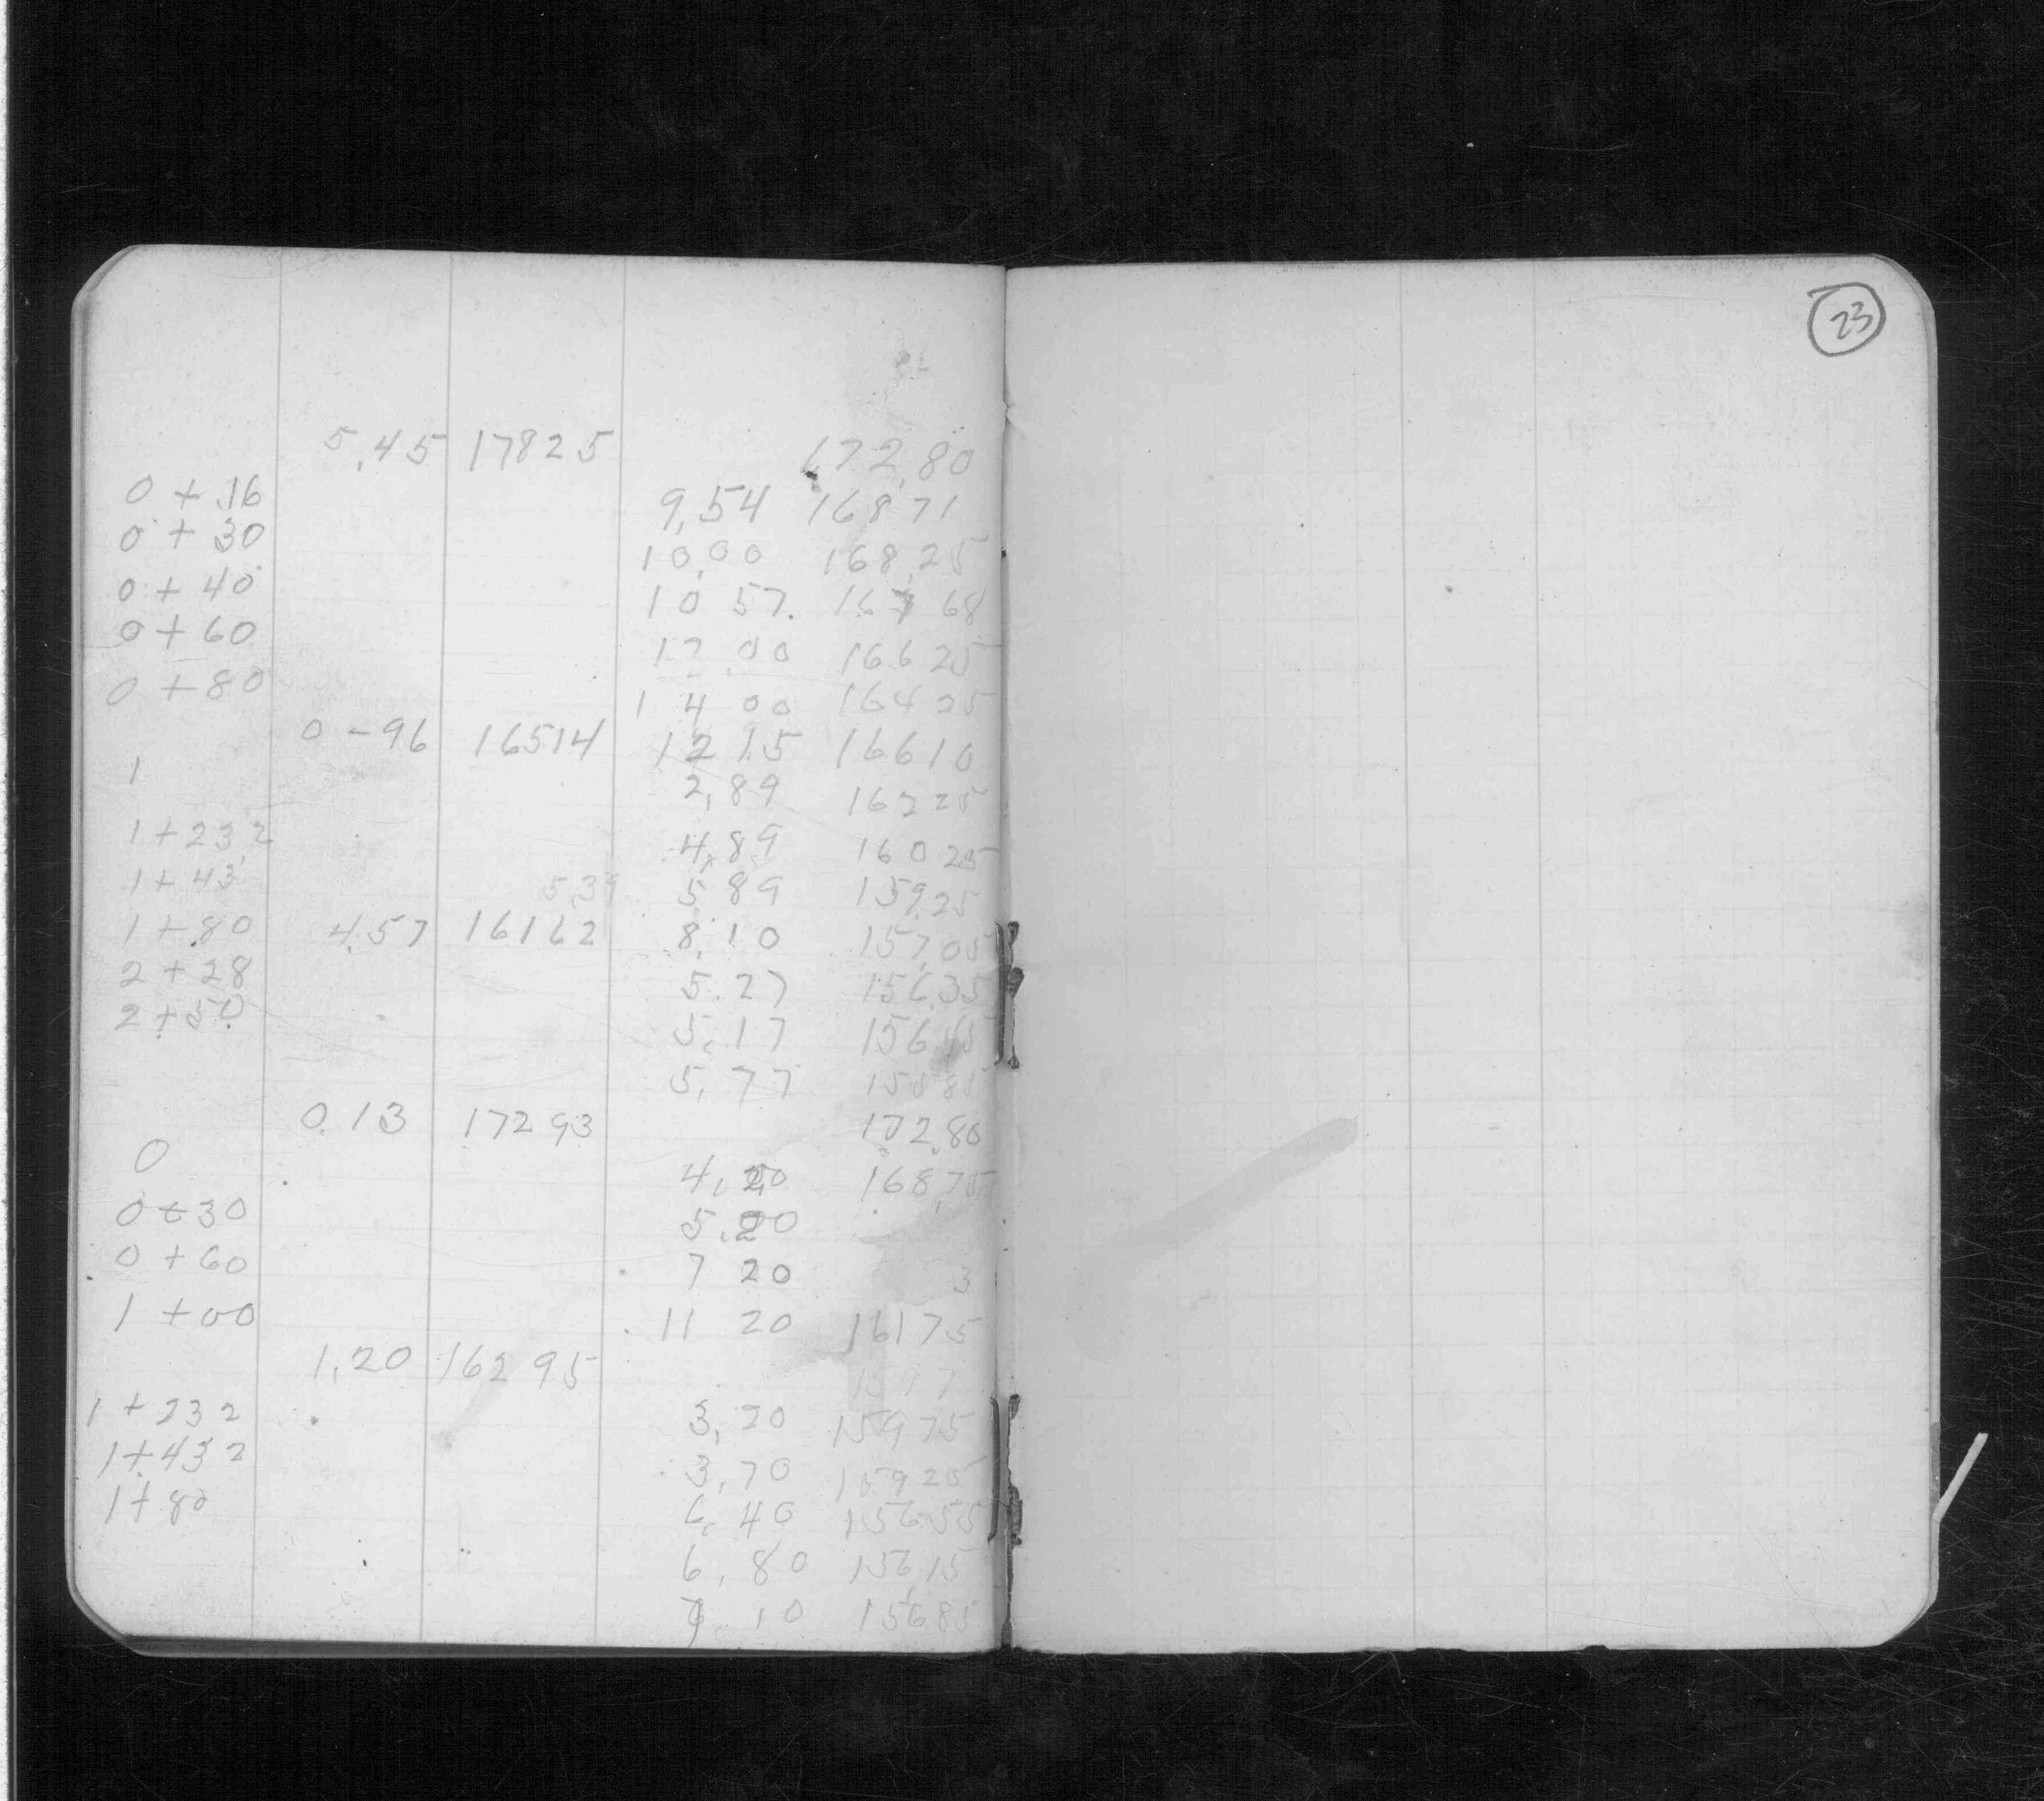 23
5,45 17825 172,80
0 + 16 9,54 16871
0 + 30 10,00 168,25
0 + 40 10 57. 167 68
0 + 60 12,00 166 25
0 + 80 14 00 164 25
0-96 16514 12 15 16610
1 2,89 16225
1+23,2 4,89 160 25
1+43 5,39 5 89 159,25
1+80 4,57 16162 8,10 157,05
2+28 5.27 156,35
2+50 5,17 156,45
5,77 155 85
0.13 172 93 172,80
0 4,20 168,75
0+30 5.20
0+60 7 20 3
1+00 11 20 16175
1,20 162 95 1597
1+232 3,20 15975
1+432 3,70 15925
1+80 6,40 15655
6,80 156,15
7 10 15685